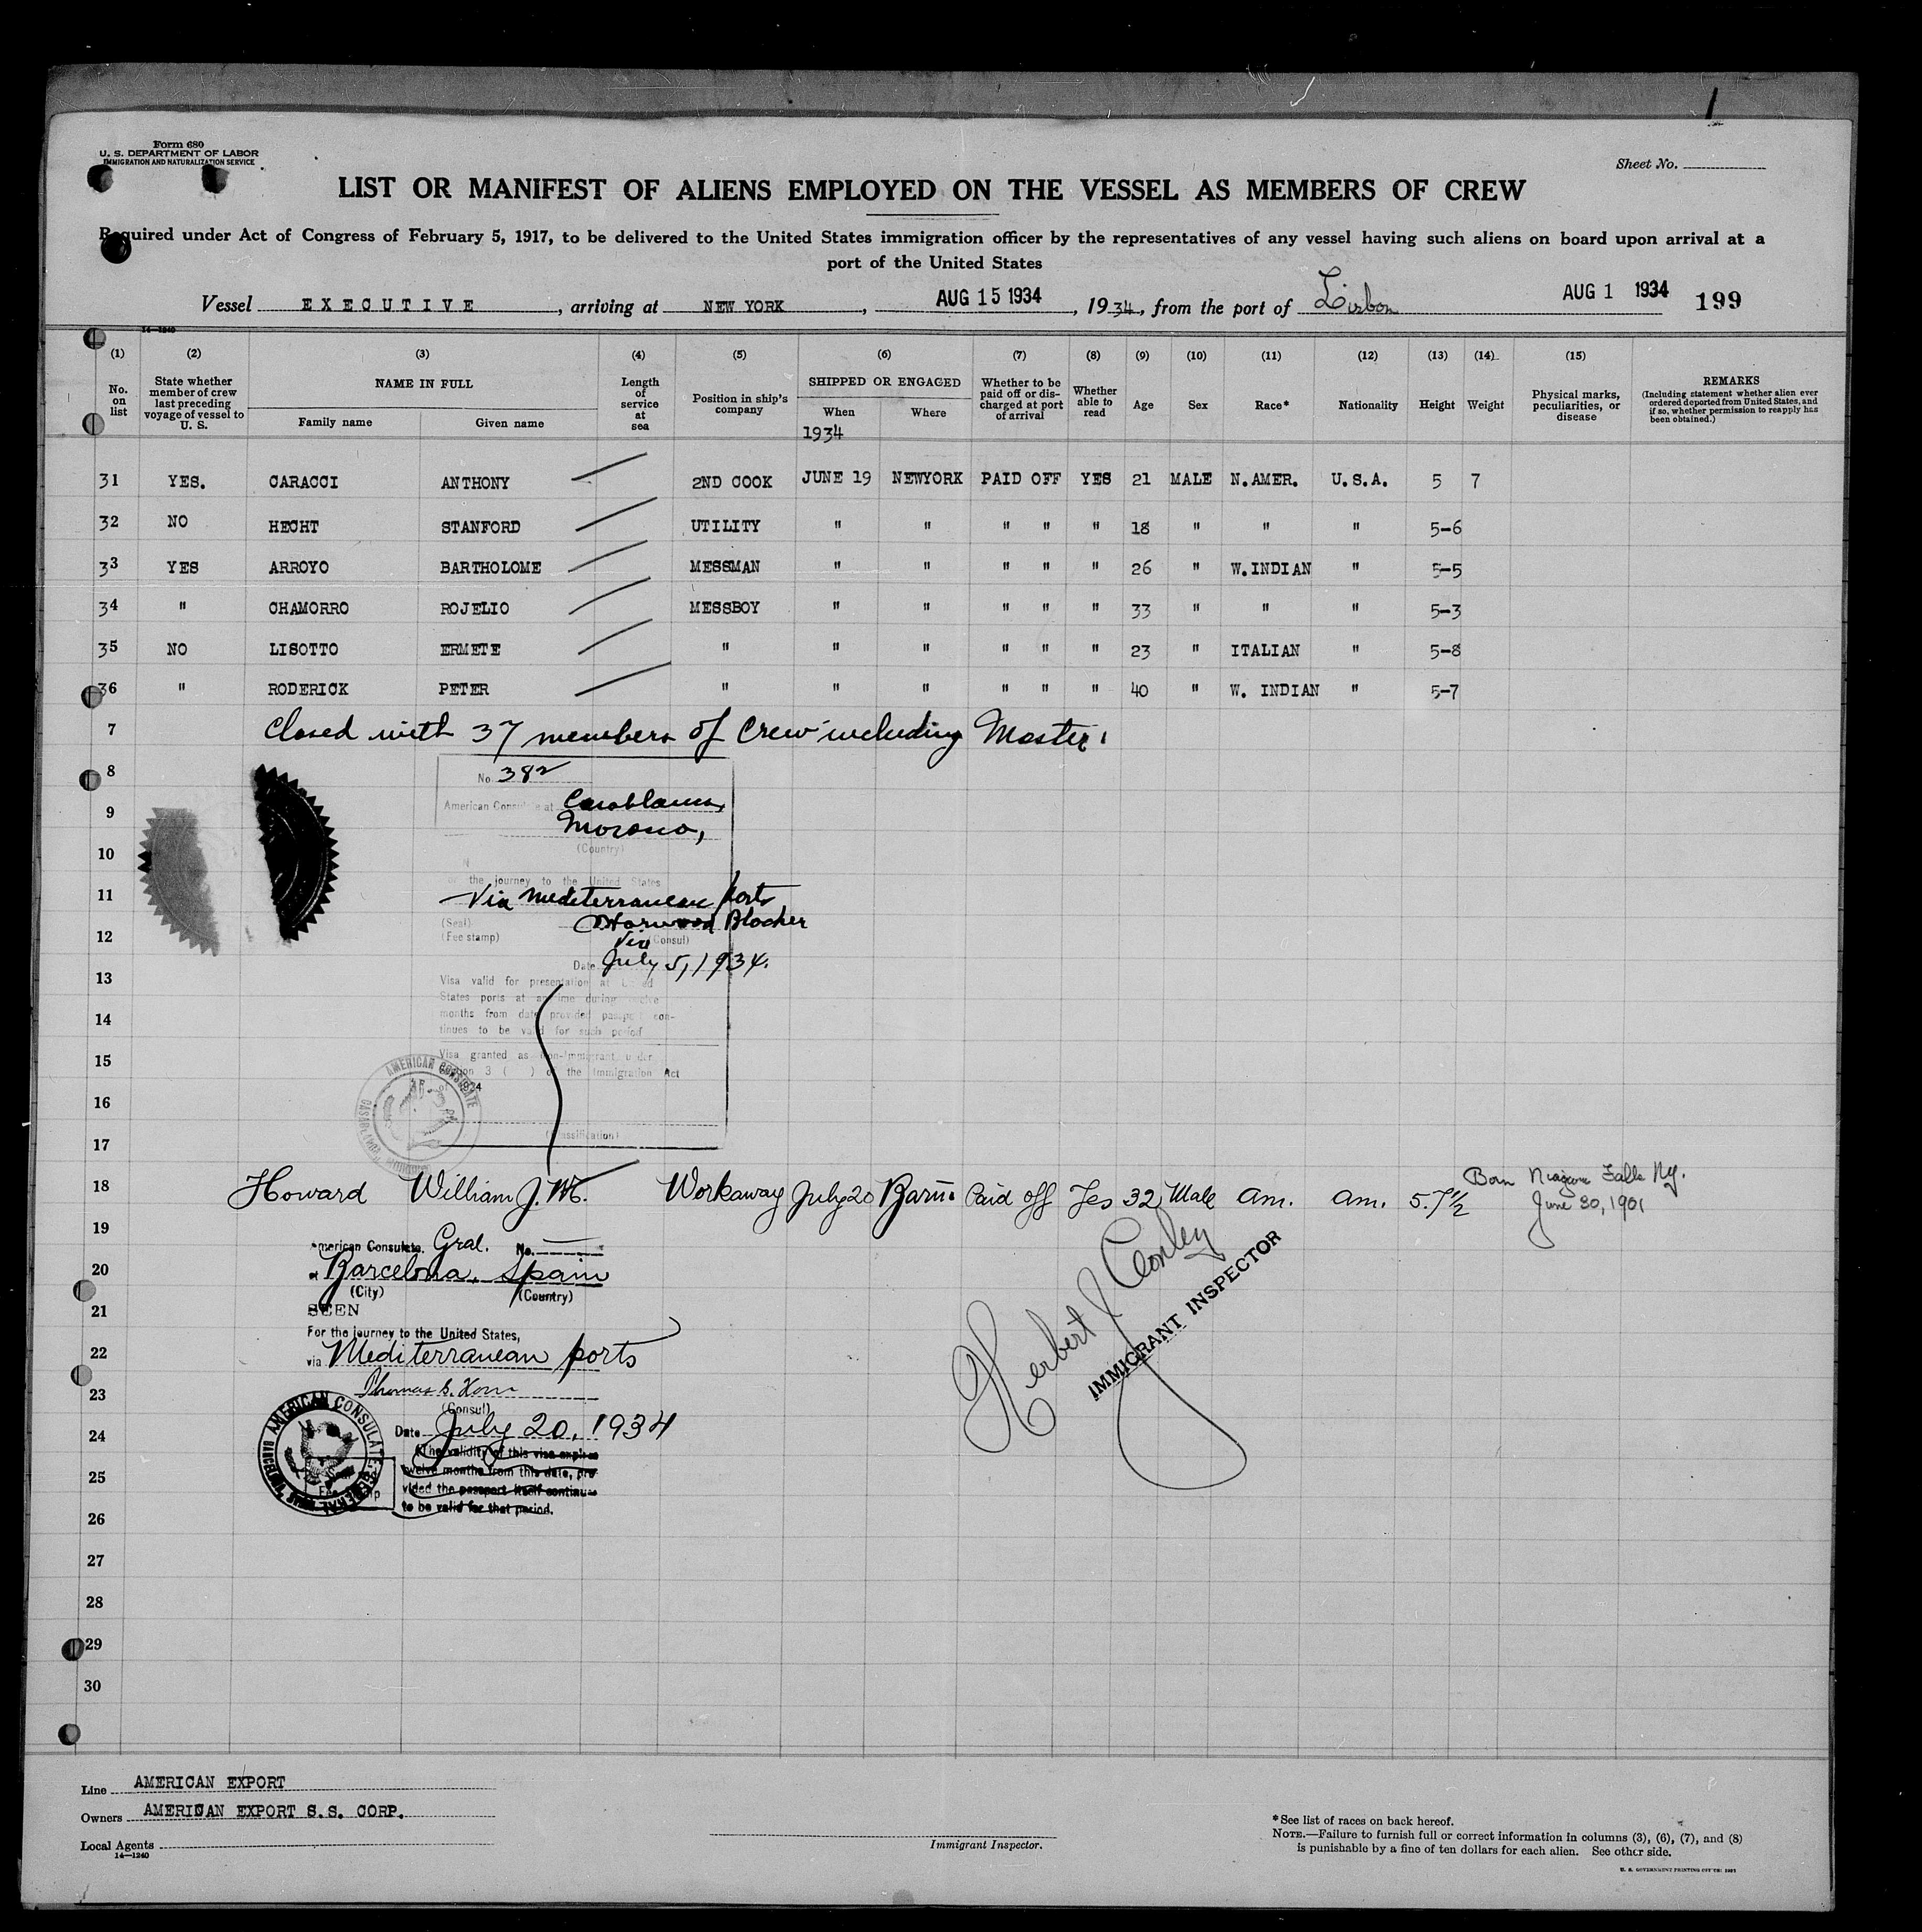 Form 680
U. S. DEPARTMENT OF LABOR
IMMIGRATION AND NATURALIZATION SERVICE
Sheet No.
LIST OR MANIFEST OF ALIENS EMPLOYED ON THE VESSEL AS MEMBERS OF CREW
Required under Act of Congress of February 5, 1917, to be delivered to the United States immigration officer by the representatives of any vessel having such aliens on board upon arrival at a
port of the United States
Vessel EXECUTIVE, arriving at NEW YORK, AUG 15 1934, 1934, from the port of Lisbon AUG 1 1934 199
14—1240
(1) (2) (3) (4) (5) (6) (7) (8) (9) (10) (11) (12) (13) (14) (15)
No. on list State whether member of crew last preceding voyage of vessel to U. S. NAME IN FULL Family name Given name Length of service at sea Position in ship's company SHIPPED OR ENGAGED When Where Whether to be paid off or discharged at port of arrival Whether able to read Age Sex Race* Nationality Height Weight Physical marks, peculiarities, or disease REMARKS (Including statement whether alien ever ordered deported from United States, and if so, whether permission to reapply has been obtained.)
1934
31 YES. CARACCI ANTHONY 2ND COOK JUNE 19 NEWYORK PAID OFF YES 21 MALE N.AMER. U.S.A. 5 7
32 NO HECHT STANFORD UTILITY " " " " " 18 " " " 5-6
33 YES ARROYO BARTHOLOME MESSMAN " " " " " 26 " W.INDIAN " 5-5
34 " CHAMORRO ROJELIO MESSBOY " " " " " 33 " " " 5-3
35 NO LISOTTO ERMETE " " " " " " 23 " ITALIAN " 5-8
36 " RODERICK PETER " " " " " " 40 " W. INDIAN " 5-7
7 Closed with 37 members of Crew including Master.
8 No. 382
American Consulate at Casablanca,
9 Morocco,
10 (Country)
the journey to the United States
11 Via Mediterranean ports
(Seal) Harwood Blocher
12 (Fee stamp) Vice (Consul)
Date July 5, 1934.
13 Visa valid for presentation at United
States ports at any time during twelve
14 months from date provided passport con-
tinues to be valid for such period
15 Visa granted as Non-Immigrant under
Section 3 ( ) of the Immigration Act
of 1924
AMERICAN CONSULATE
16
17 (Classification)
18 Howard William J. M. Workaway July 20 Barna Paid off Yes 32 Male Am. Am. 5.7½ Born Niagara Falls Ny.
June 30, 1901
19 American Consulate Gral. No.
20 at Barcelona, Spain
(City) (Country)
21 SEEN
For the journey to the United States,
22 via Mediterranean ports
23 Thomas S. Horn
(Consul)
24 Date July 20, 1934
(The validity of this visa expires
25 twelve months from this date, pro-
vided the passport itself continues
to be valid for that period.
AMERICAN CONSULATE GENERAL
Herbert J Conley
IMMIGRANT INSPECTOR
26
27
28
29
30
Line AMERICAN EXPORT
Owners AMERICAN EXPORT S.S. CORP.
Local Agents
14—1240
Immigrant Inspector.
*See list of races on back hereof.
NOTE.—Failure to furnish full or correct information in columns (3), (6), (7), and (8)
is punishable by a fine of ten dollars for each alien. See other side.
U. S. GOVERNMENT PRINTING OFFICE